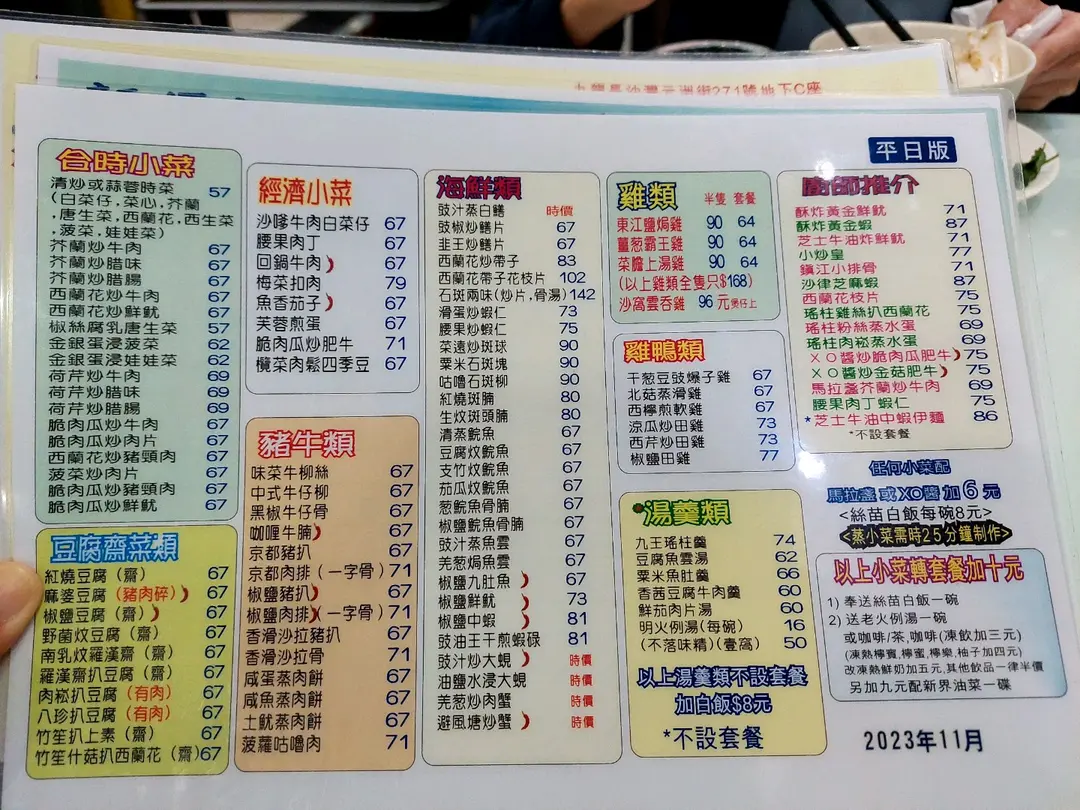 九龍長沙灣元洲街271號地下C座
平日版
合時小菜
清炒或蒜蓉時菜 57
(白菜仔,菜心,芥蘭
,唐生菜,西蘭花,西生菜
,菠菜,娃娃菜)
芥蘭炒牛肉 67
芥蘭炒腊味 67
芥蘭炒腊腸 67
西蘭花炒牛肉 67
西蘭花炒鮮魷 67
椒絲腐乳唐生菜 57
金銀蛋浸菠菜 62
金銀蛋浸娃娃菜 62
荷芹炒牛肉 69
荷芹炒腊味 69
荷芹炒腊腸 69
脆肉瓜炒牛肉 67
脆肉瓜炒肉片 67
西蘭花炒豬頸肉 67
菠菜炒肉片 67
脆肉瓜炒豬頸肉 67
脆肉瓜炒鮮魷 67
豆腐齋菜類
紅燒豆腐(齋) 67
麻婆豆腐(豬肉碎) 67
椒鹽豆腐(齋) 67
野菌炆豆腐(齋) 67
南乳炆羅漢齋(齋) 67
羅漢齋扒豆腐(齋) 67
肉崧扒豆腐(有肉) 67
八珍扒豆腐(有肉) 67
竹笙扒上素(齋) 67
竹笙什菇扒西蘭花(齋) 67
經濟小菜
沙嗲牛肉白菜仔 67
腰果肉丁 67
回鍋牛肉 67
梅菜扣肉 79
魚香茄子 67
芙蓉煎蛋 67
脆肉瓜炒肥牛 71
欖菜肉鬆四季豆 67
豬牛類
味菜牛柳絲 67
中式牛仔柳 67
黑椒牛仔骨 67
咖喱牛腩 67
京都豬扒 67
京都肉排(一字骨) 71
椒鹽豬扒 67
椒鹽肉排(一字骨) 71
香滑沙拉豬扒 67
香滑沙拉骨 71
咸蛋蒸肉餅 67
咸魚蒸肉餅 67
土魷蒸肉餅 67
菠蘿咕嚕肉 71
海鮮類
豉汁蒸白鱔 時價
豉椒炒鱔片 67
韭王炒鱔片 67
西蘭花炒帶子 83
西蘭花帶子花枝片 102
石斑兩味(炒片,骨湯) 142
滑蛋炒蝦仁 73
腰果炒蝦仁 75
菜遠炒斑球 90
粟米石斑塊 90
咕嚕石斑柳 90
紅燒斑腩 80
生炆斑頭腩 80
清蒸鯇魚 67
豆腐炆鯇魚 67
支竹炆鯇魚 67
茄瓜炆鯇魚 67
葱鯇魚骨腩 67
椒鹽鯇魚骨腩 67
豉汁蒸魚雲 67
羌葱焗魚雲 67
椒鹽九肚魚 67
椒鹽鮮魷 73
椒鹽中蝦 81
豉油王干煎蝦碌 81
豉汁炒大蜆 時價
油鹽水浸大蜆 時價
羌葱炒肉蟹 時價
避風塘炒蟹 時價
雞類 半隻 套餐
東江鹽焗雞 90 64
薑葱霸王雞 90 64
菜膽上湯雞 90 64
(以上雞類全隻只$168)
沙窩雲吞雞 96元煲仔上
雞鴨類
干葱豆豉爆子雞 67
北菇蒸滑雞 67
西檸煎軟雞 67
涼瓜炒田雞 73
西芹炒田雞 73
椒鹽田雞 77
湯羹類
九王瑤柱羹 74
豆腐魚雲湯 62
粟米魚肚羹 66
香茜豆腐牛肉羹 60
鮮茄肉片湯 60
明火例湯(每碗) 16
(不落味精)(壹窩) 50
以上湯羹類不設套餐
加白飯$8元
*不設套餐
廚師推介
酥炸黃金鮮魷 71
酥炸黃金蝦 87
芝士牛油炸鮮魷 71
小炒皇 77
鎮江小排骨 71
沙律芝麻蝦 87
西蘭花枝片 75
瑤柱雞絲扒西蘭花 75
瑤柱粉絲蒸水蛋 69
瑤柱肉崧蒸水蛋 69
XO醬炒脆肉瓜肥牛 75
XO醬炒金菇肥牛 75
馬拉盞芥蘭炒牛肉 69
腰果肉丁蝦仁 75
*芝士牛油中蝦伊麵 86
*不設套餐
任何小菜配
馬拉盞 或 XO醬 加6元
<絲苗白飯每碗8元>
<蒸小菜需時25分鐘制作>
以上小菜轉套餐加十元
1) 奉送絲苗白飯一碗
2) 送老火例湯一碗
或咖啡/茶,咖啡(凍飲加三元)
(凍熱檸寶,檸蜜,檸樂,柚子加四元)
改凍熱鮮奶加五元,其他飲品一律半價
另加九元配新界油菜一碟
2023年11月